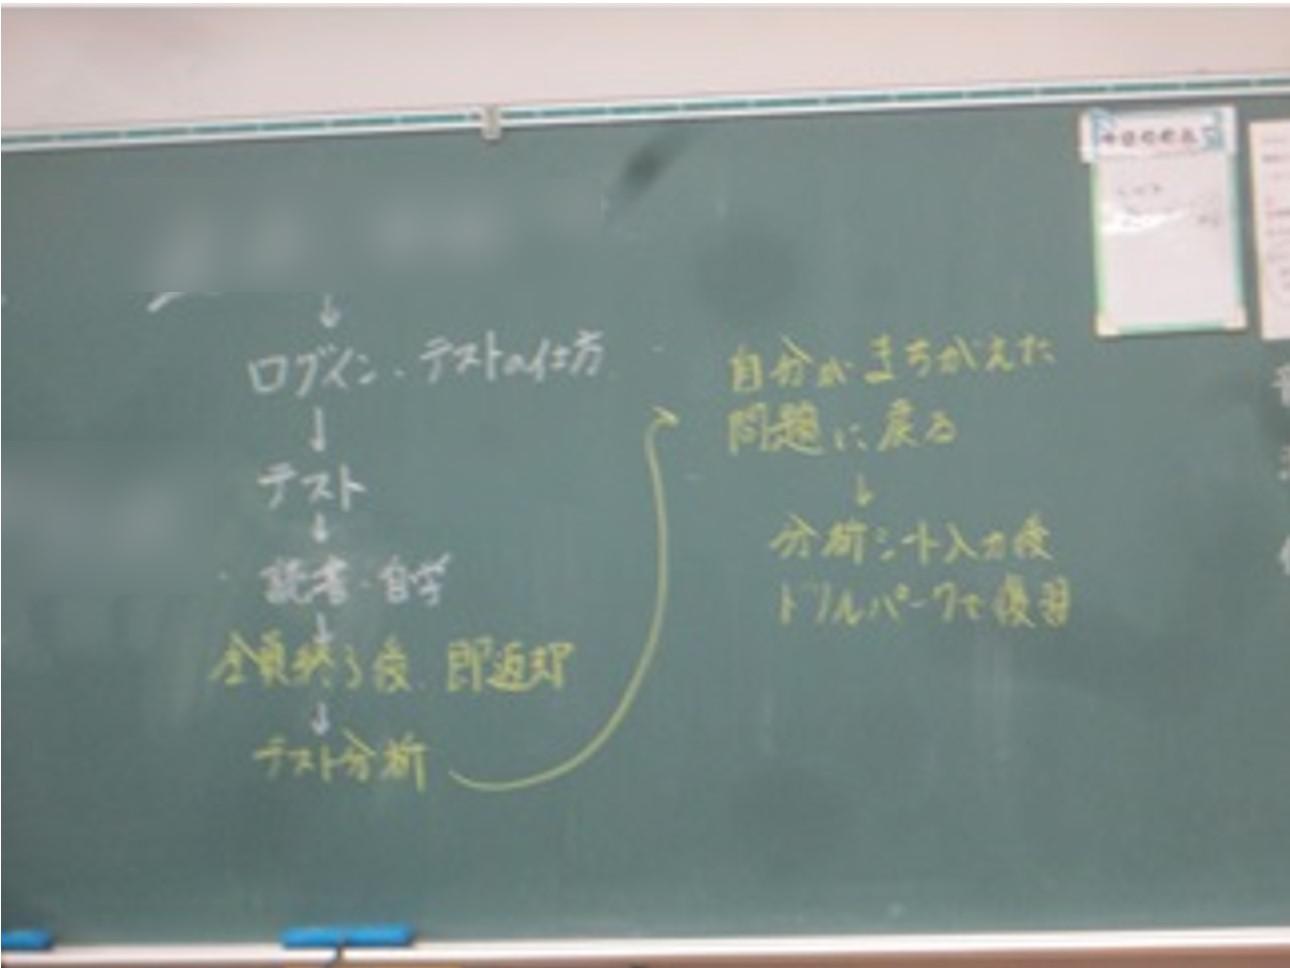 ↓
ログイン・テストの仕方
↓
テスト
↓
読書・自学
↓
全員終了後 即返却
↓
テスト分析
自分がまちがえた
問題に戻る
↓
分析シート入力後
ドリルパークで復習